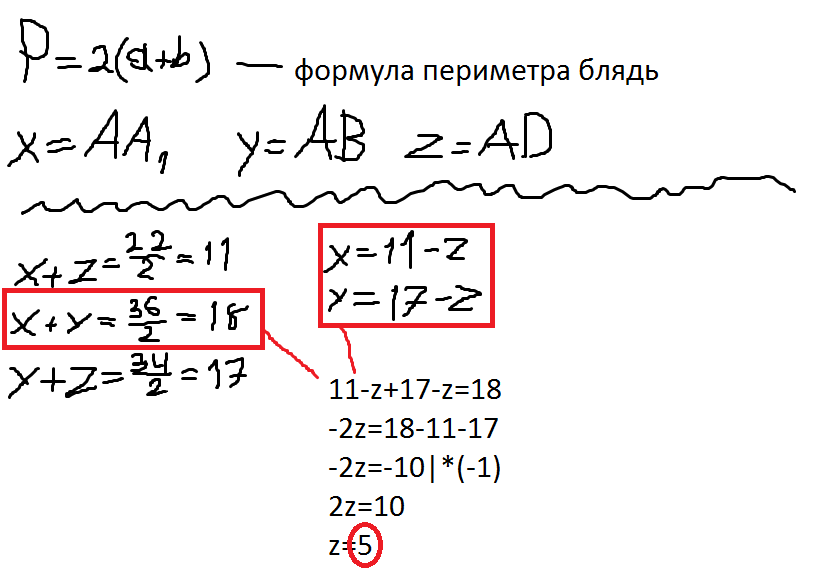 P=2(a+b) — формула периметра блядь
x=AA₁ y=AB z=AD
x+z=22/2=11
x+y=36/2=18
y+z=34/2=17
x=11-z
y=17-z
11-z+17-z=18
-2z=18-11-17
-2z=-10|*(-1)
2z=10
z=5